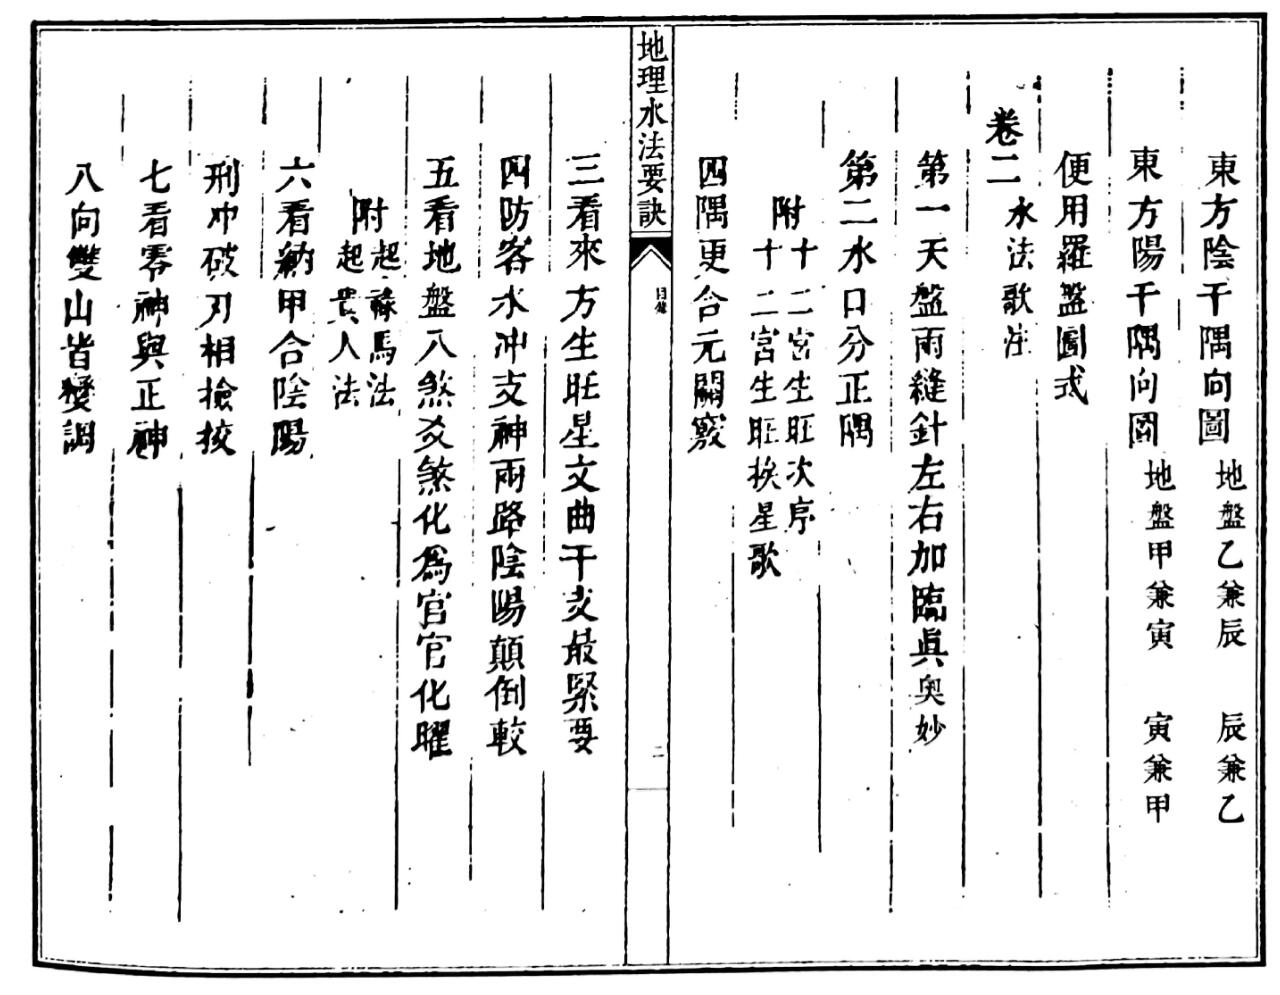 東方陰干隅向圖 地盤乙兼辰 辰兼乙
東方陽干隅向圖 地盤甲兼寅 寅兼甲
便用羅盤圖式
卷二 水法歌注
第一天盤雨縫針左右加臨眞奧妙
第二水口分正隅
附 十二宮生旺次序
十二宮生旺挨星歌
四隅更合元關竅
地理水法要訣
目錄
二
三看來方生旺星文曲干支最緊要
四防客水冲支神兩路陰陽顛倒較
五看地盤八煞爻煞化爲官官化曜
附 起祿馬法
起貴人法
六看納甲合陰陽
刑冲破刃相撿挍
七看零神與正神
八向雙山皆變調